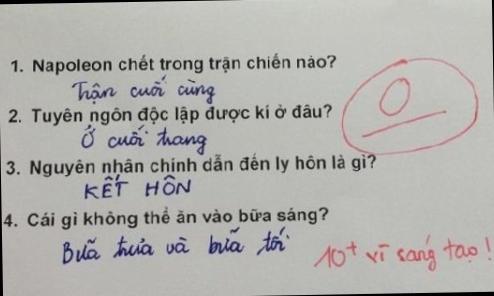 1. Napoleon chết trong trận chiến nào?
Trận cuối cùng
2. Tuyên ngôn độc lập được kí ở đâu?
Ở cuối trang
0
3. Nguyên nhân chính dẫn đến ly hôn là gì?
KẾT HÔN
4. Cái gì không thể ăn vào bữa sáng?
Bữa trưa và bữa tối
10+ vì sáng tạo!